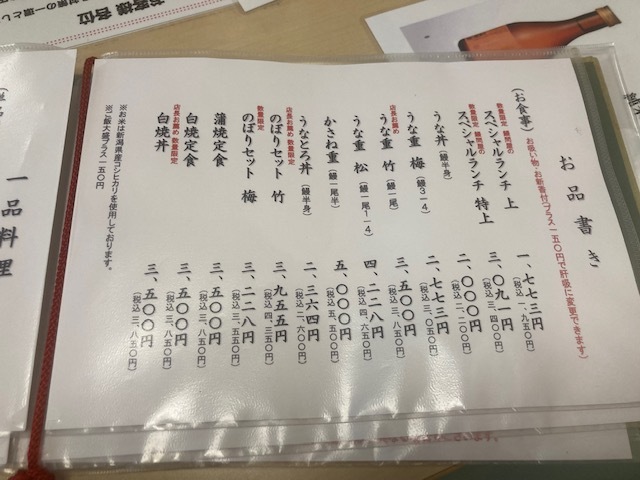 お品書き
(お食事) お吸い物・お新香付(プラス一五〇円で肝吸に変更できます)
数量限定 鰻問屋の
スペシャルランチ 上 一、七七三円
(税込 一、九五〇円)
数量限定 鰻問屋の
スペシャルランチ 特上 三、〇九一円
(税込 三、四〇〇円)
うな丼 (鰻半身) 二、〇〇〇円
(税込 二、二〇〇円)
うな重 梅 (鰻3-4) 二、七七三円
(税込 三、〇五〇円)
店長お薦め
うな重 竹 (鰻一尾) 三、五〇〇円
(税込 三、八五〇円)
うな重 松 (鰻一尾1-4) 四、二二八円
(税込 四、六五〇円)
かさね重 (鰻一尾半) 五、〇〇〇円
(税込 五、五〇〇円)
うなとろ丼 (鰻半身) 二、三六四円
(税込 二、六〇〇円)
店長お薦め 数量限定
のぼりセット 竹 三、九五五円
(税込 四、三五〇円)
数量限定
のぼりセット 梅 三、二二八円
(税込 三、五五〇円)
蒲焼定食 三、五〇〇円
(税込 三、八五〇円)
白焼定食 三、五〇〇円
(税込 三、八五〇円)
店長お薦め 数量限定
白焼丼 三、五〇〇円
(税込 三、八五〇円)
※お米は新潟県産コシヒカリを使用しております。
※ご飯大盛プラス一五〇円
一品料理
お客様各位